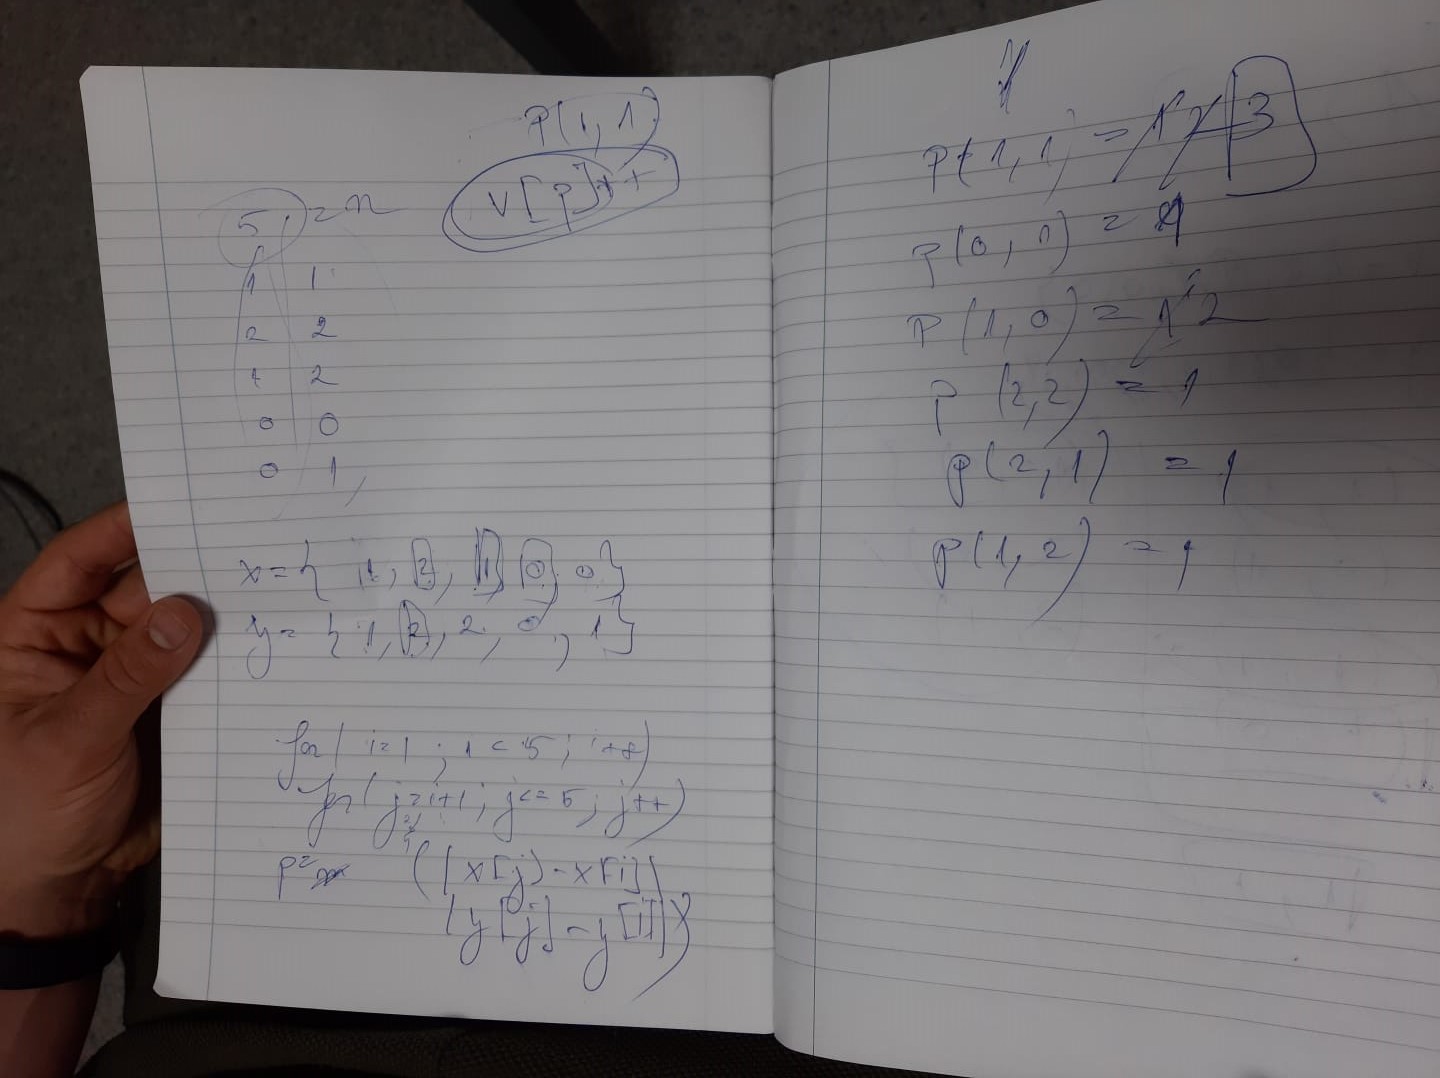 p(1,1)
v[p]++
5 = n
1 1
2 2
1 2
0 0
0 1,
x={ 1, 2, 1, 0, 0}
y= { 1, 2, 2, 0, 1}
for( i=1 ; i < 5 ; i++)
for( j=i+1 ; j<= 5 ; j++)
p= (|x[j]-x[i]|
|y[j]-y[i]|)
p(1,1) = 1 2 3
p(0,1) = 1
p(1,0) = 1 2
p(2,2) = 1
p(2,1) = 1
p(1,2) = 1